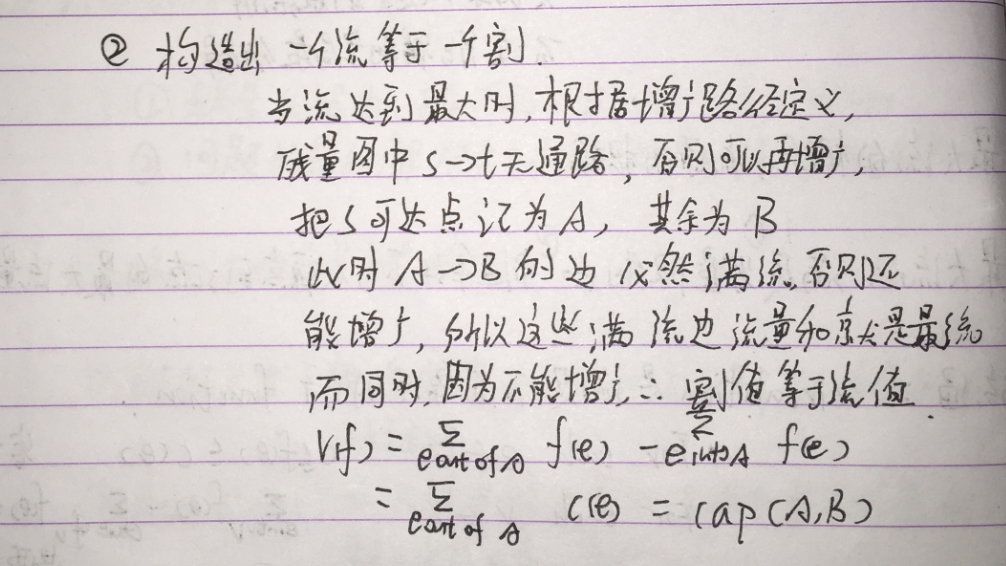 ② 构造出 一个流等于一个割.
当流达到最大时,根据增广路径定义,
残量图中 s→t无通路,否则可以再增广,
把 s 可达点记为 A, 其余为 B
此时 A→B 的边 必然满流,否则还
能增广,所以这些满流边流量和就是最大流
而同时,因为不能增广,∴ 割值等于流值.
V(f) = Σ e out of A f(e) - Σ e into A f(e)
= Σ e out of A c(e) = cap(A,B)